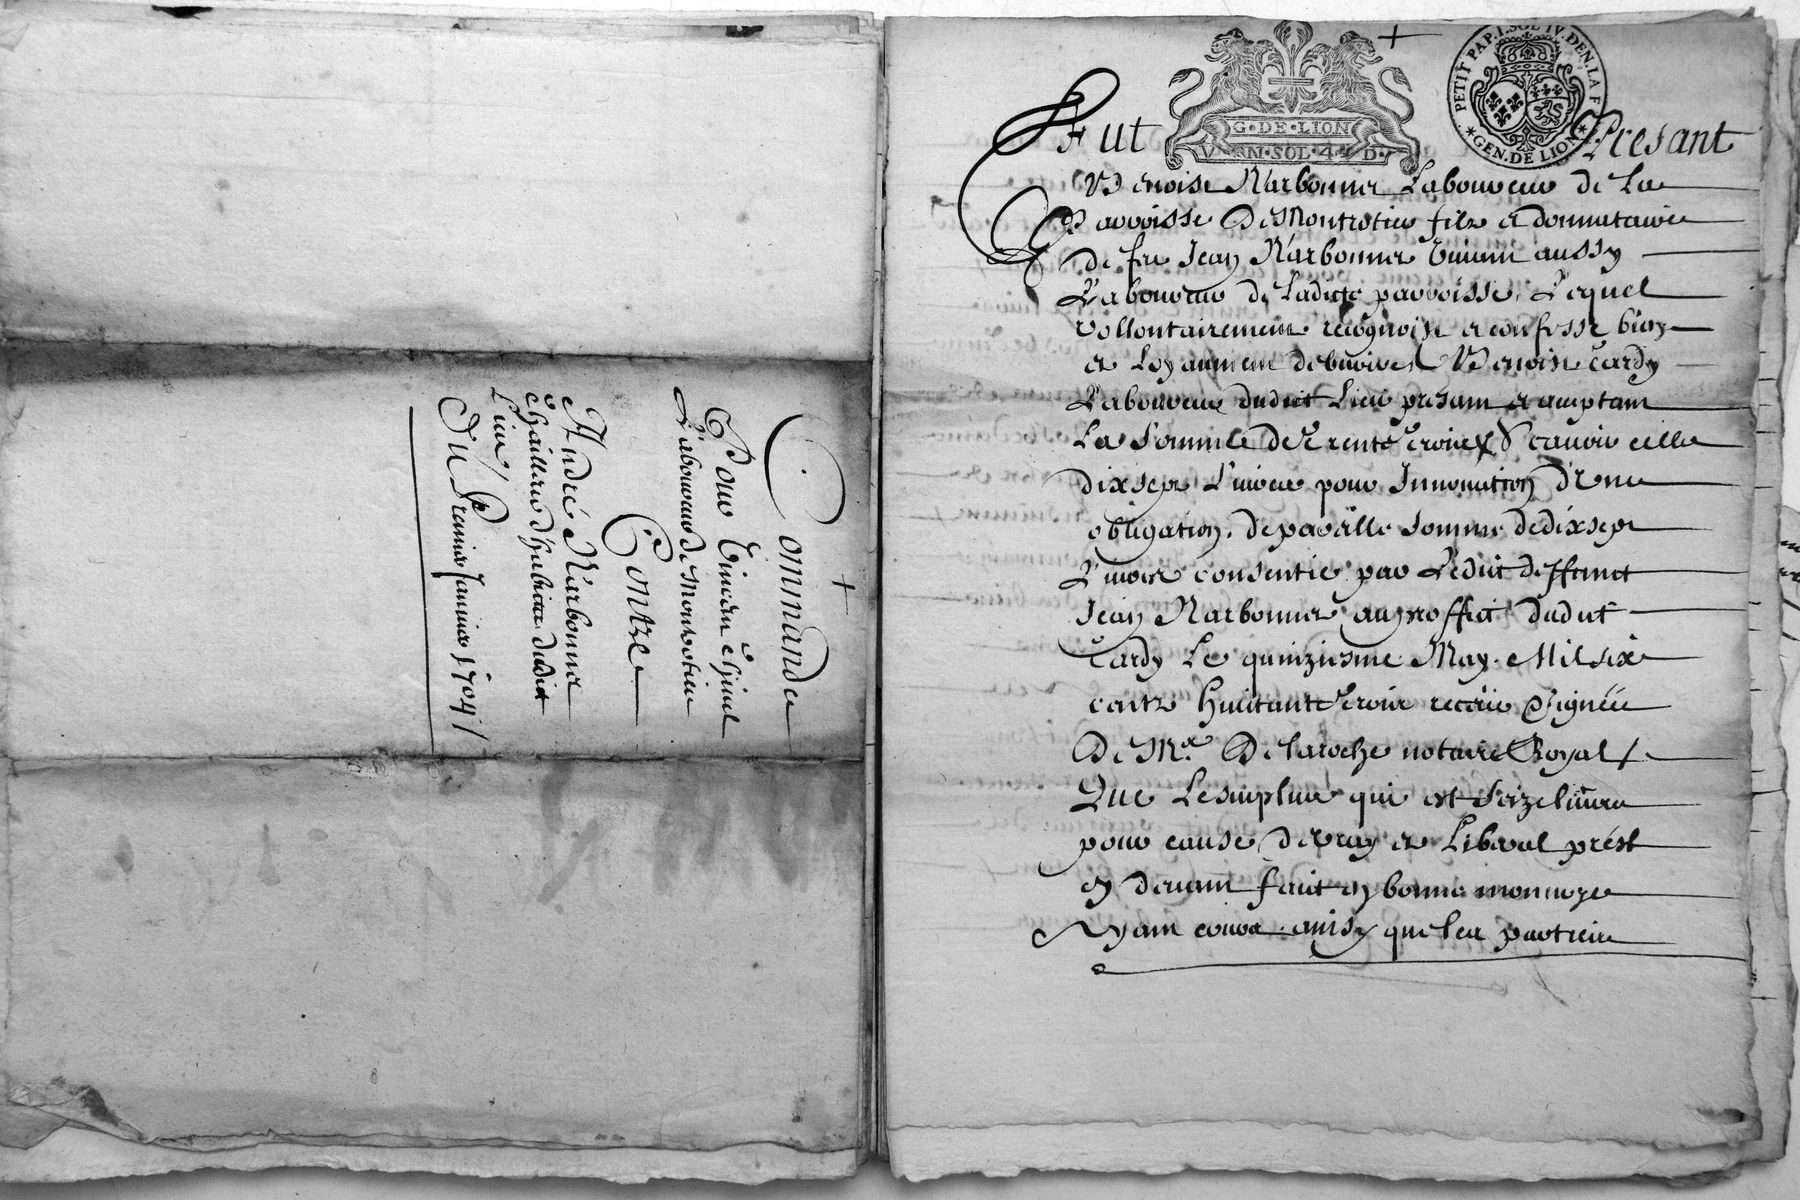 Commande
Pour
Laboureur de Montrotier
Contre
André Narbonner
dudit
Lieu
Du Premier Janvier 1704
G·DE·LION
V N·SOL·4·D·
PETIT PAP. I. SOL IV. DEN. LA F
GEN. DE LION
Fut Presant
Benoist Narbonner Laboureur de La
Parroisse De Montrotier filz et donnataire
de feu Jean Narbonner vivant aussy
Laboureur de Ladicte parroisse, Lequel
vollontairement recognoist et confesse bien
et Loyaument debvoir Benoist Cardy
Laboureur dudict Lieu presant et acceptant
La Somme de Trente Trois Scavoir celle
dixsept Livres pour Innovation d'une
obligation de pareille somme de dixsept
Livres consentie par Ledict deffunct
Jean Narbonner au proffict dudict
Cardy Le quinziesme May Mil six
centz huictante Trois receüe Signée
De Mre Delaroche notaire Royal
Que Lesurplus qui est Seize livres
pour cause de vray et Liberal prést
cy devant faict en bonne monnoye
Ayant cours ainsy que les parties